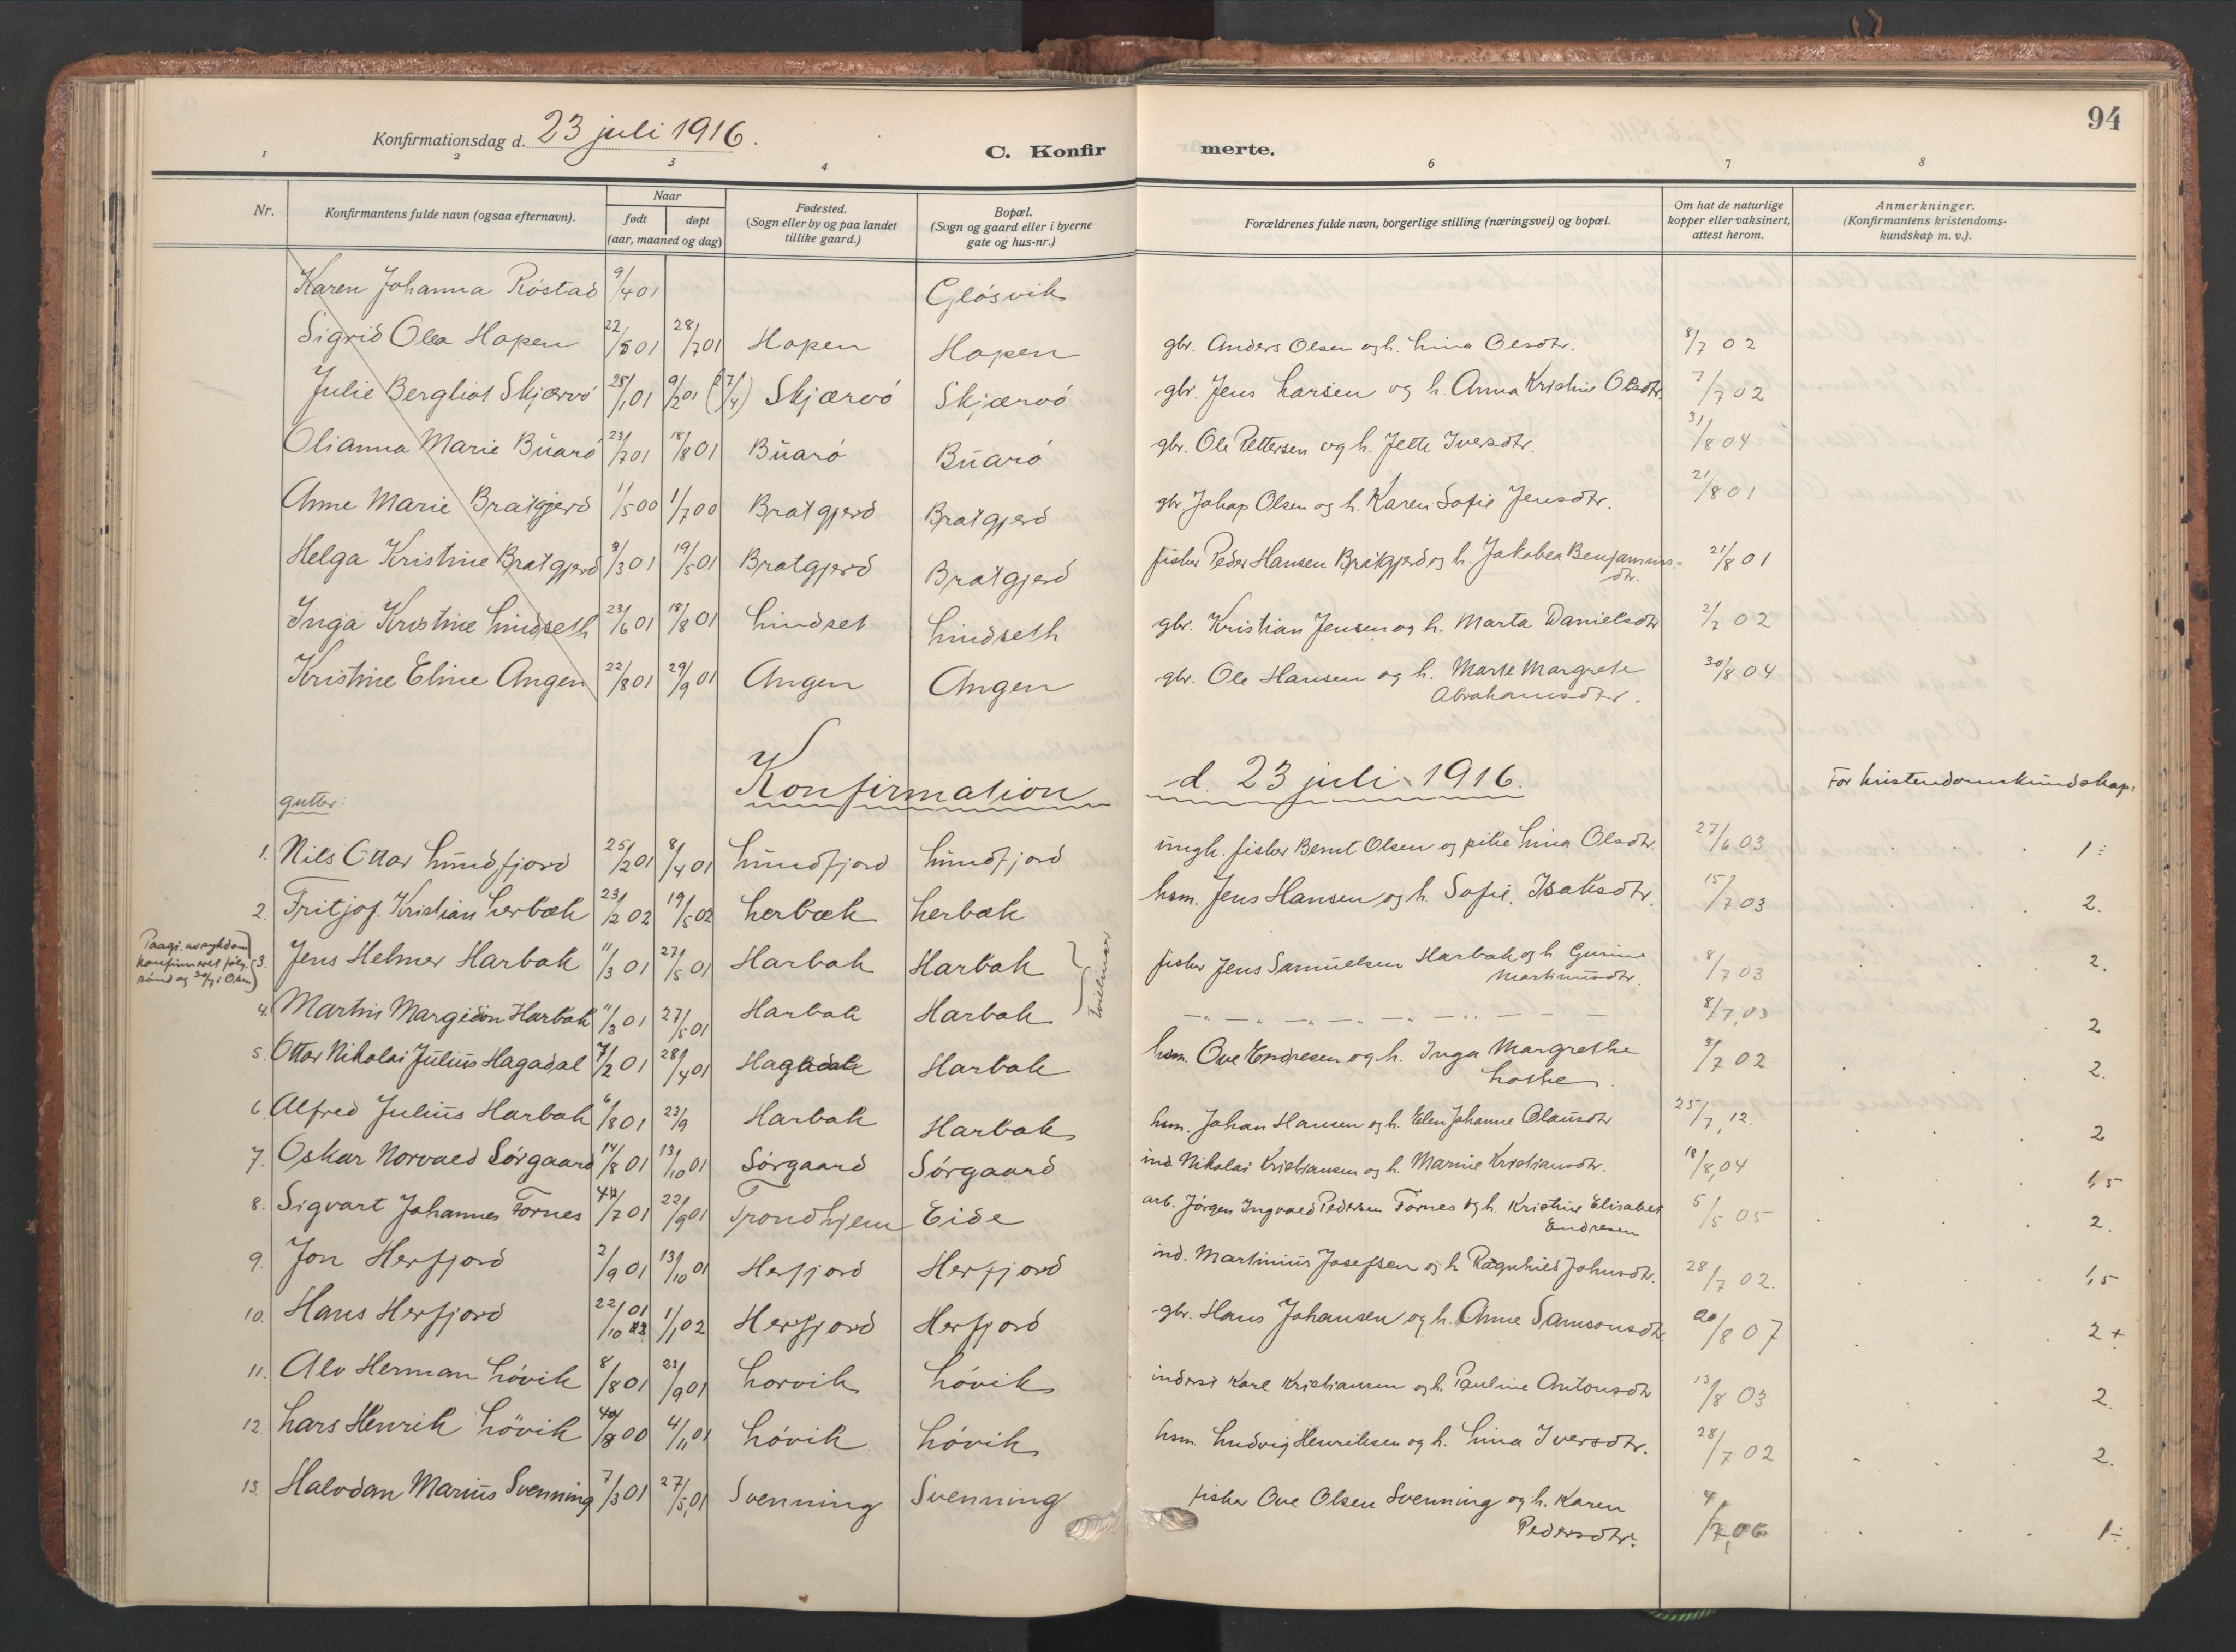 94
Konfirmationsdag d. 23 juli 1916.
C. Konfirmerte.
1 2 3 4 6 7 8
Nr. | Konfirmantens fulde navn (ogsaa efternavn). | Naar født døpt (aar, maaned og dag) | Fødested. (Sogn eller by og paa landet tillike gaard.) | Bopæl. (Sogn og gaard eller i byerne gate og hus-nr.) | Forældrenes fulde navn, borgerlige stilling (næringsvei) og bopæl. | Om hat de naturlige kopper eller vaksinert, attest herom. | Anmerkninger. (Konfirmantens kristendoms-kundskap m. v.).
Karen Johanna Röstad 9/4 01 Glösvik
Sigrid Olea Hopen 22/5 01 28/7 01 Hopen Hopen gbr. Anders Olsen og h. Lina Olsdtr. 8/7 02
Julie Bergliot Skjærvö 25/1 01 9/2 01 (27/4) Skjærvö Skjærvö gbr. Jens Larsen og h. Anna Kristine Olsdtr. 7/7 02
Olianna Marie Buarö 23/7 01 18/8 01 Buarö Buarö gbr. Ole Pettersen og h. Jette Iversdtr. 31/8 04
Anne Marie Bratgjerd 1/5 00 1/7 00 Bratgjerd Bratgjerd gbr. Johap Olsen og h. Karen Sofie Jensdtr. 21/8 01
Helga Kristine Bratgjerd 9/3 01 19/5 01 Bratgjerd Bratgjerd fisker Peder Hansen Bratgjerd og h. Jakobea Benjamins-
dtr. 21/8 01
Inga Kristine Lindseth 23/6 01 18/8 01 Lindset Lindseth gbr. Kristian Jensen og h. Marta Danielsdtr 2/7 02
Kristine Eline Angen 22/8 01 29/9 01 Angen Angen gbr. Ole Hansen og h. Marte Margrete
Abrahamsdtr. 30/8 04
Konfirmation d. 23 juli 1916. For kristendomskundskap:
gutter:
1. Nils Ottar Lundfjord 25/2 01 8/4 01 Lundfjord Lundfjord ungk. fisker Bernt Olsen og pike Lina Olsdtr. 27/6 03 1÷
2. Fritjof Kristian Lerbæk 23/2 02 19/5 02 Lerbæk Lerbæk hsm. Jens Hansen og h. Sofie Isaksdtr. 15/7 03 2.
Paagr. av sykdom
konfirmeret følg.
søndag 30/7 i Osen
3. Jens Helmer Harbak 11/3 01 27/5 01 Harbak Harbak fisker Jens Samuelsen Harbak og h. Gurine
Martinusdtr. 8/7 03 2.
Tvillinger
4. Martin Margido͏n Harbak 11/3 01 27/5 01 Harbak Harbak — „ — „ — „ — 8/7 03 2
5. Ottar Nikolai Julius Hagadal 7/2 01 28/4 01 Hagadal Harbak hsm. Ove Endresen og h. Inga Margrethe
Lothe. 3/7 02 2.
6. Alfred Julius Harbak 6/8 01 23/9 Harbak Harbak hsm. Johan Hansen og h. Elen Johanne Olausdtr 25/7, 12. 2
7. Oskar Norvald Sörgaard 14/8 01 13/10 01 Sörgaard Sörgaard ind. Nikolai Kristiansen og h. Marine Kristiansdtr. 18/8, 04 1,5
8. Sigvart Johannes Fornes /7 01 22/9 01 Trondhjem Eide arb. Jörgen Ingvald Pedersen Fornes og h. Kristine Elisabet
Endresen 5/5 05 2.
9. Jon Herfjord 2/9 01 13/10 01 Herfjord Herfjord ind. Martinius Josefsen og h. Ragnhild Johnsdtr. 28/7 02. 1,5
10. Hans Herfjord 22/10 01 1/1 02 Herfjord Herfjord gbr. Hans Johansen og h. Anne Samsonsdtr. 20/8 07 2+
11. Alv Herman Lövik 8/8 01 23/9 01 Lorvik Lövik inderst Karl Kristiansen og h. Pauline Antonsdtr 13/8 03 2.
12. Lars Henrik Lövik /8 00 4/11 01 Lövik Lövik hsm. Ludvig Henriksen og h. Lina Iversdtr. 28/7 02 2.
13. Halvdan Marius Svenning 7/3 01 27/5 01 Svenning Svenning fisker Ove Olsen Svenning og h. Karen
Pedersdtr. 4/7, 06 1÷